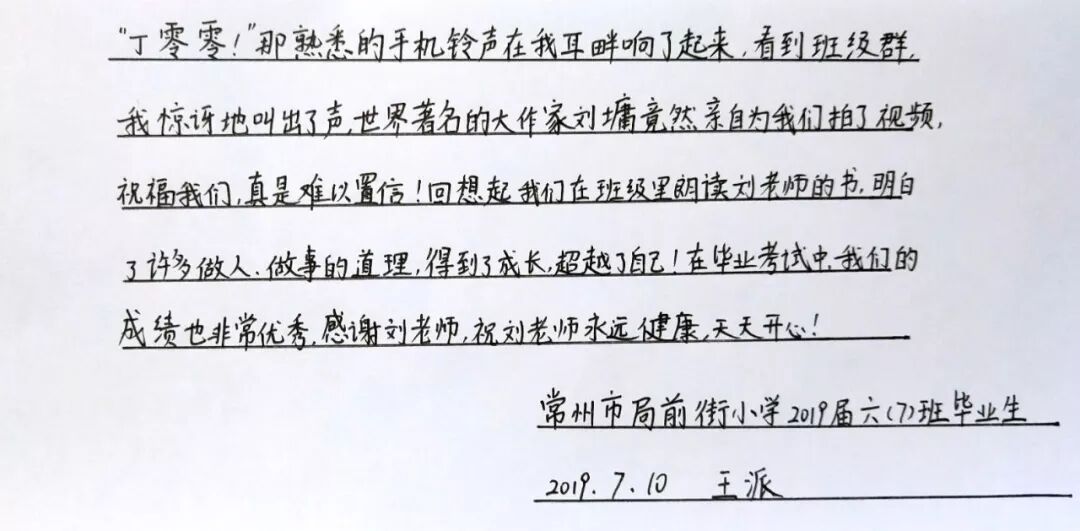 “丁零零！”那熟悉的手机铃声在我耳畔响了起来，看到班级群，
我惊讶地叫出了声，世界著名的大作家刘墉竟然亲自为我们拍了视频，
祝福我们，真是难以置信！回想起我们在班级里朗读刘老师的书，明白
了许多做人、做事的道理，得到了成长，超越了自己！在毕业考试中，我们的
成绩也非常优秀，感谢刘老师，祝刘老师永远健康，天天开心！
常州市局前街小学2019届六（7）班毕业生
2019.7.10 王派